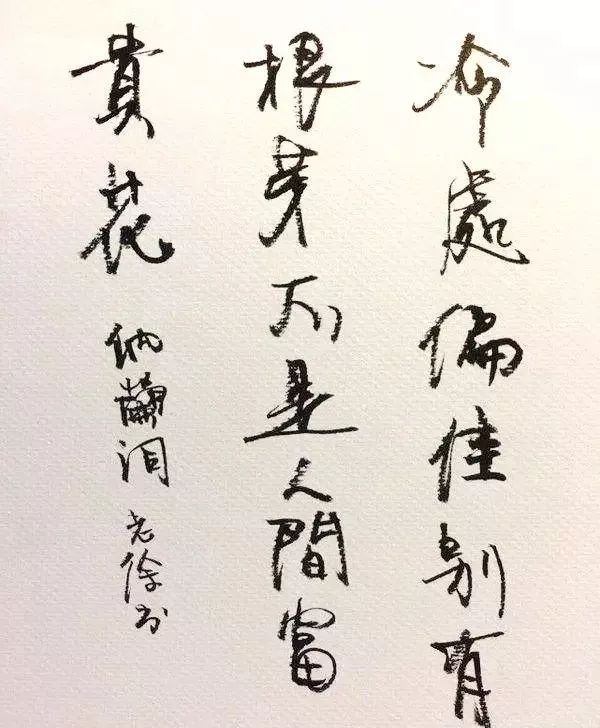 冷處偏佳別有
根芽不是人間富
貴花 納蘭词 老徐书